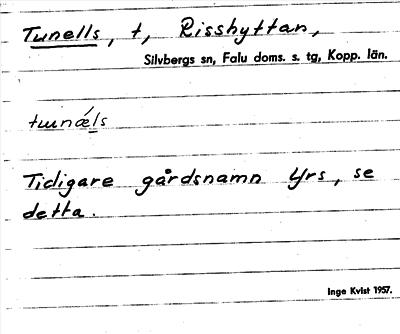 Tunells, t, Risshyttan,
Silvbergs sn, Falu doms. s. tg, Kopp. län.
tɯnǽls
Tidigare gårdsnamn Yrs, se
detta.
Inge Kvist 1957.